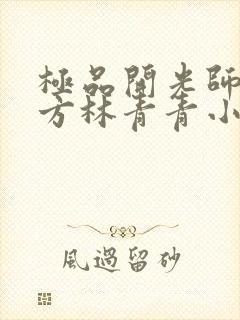 極品開光師
方林青青小
風過留砂